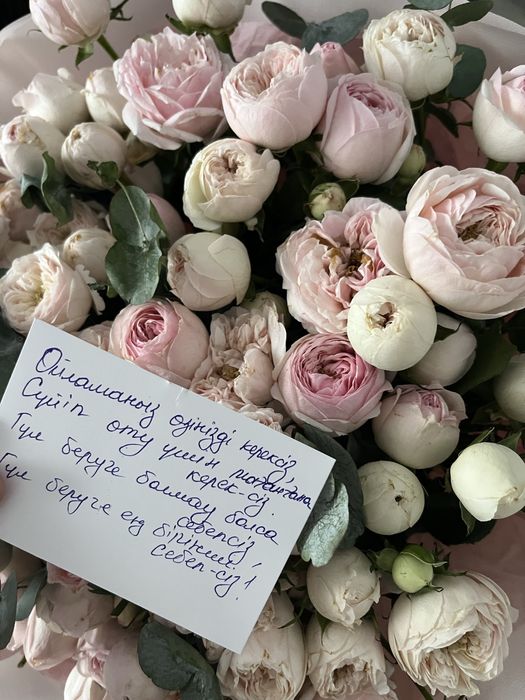 Ойламаңыз өзіңізді керексіз,
Сүйіп өту үшін маған тана
керек-сіз.
Гүл беруге болмау болса
себепсіз,
Гүл беруге ең бірінші
себеп-сіз!